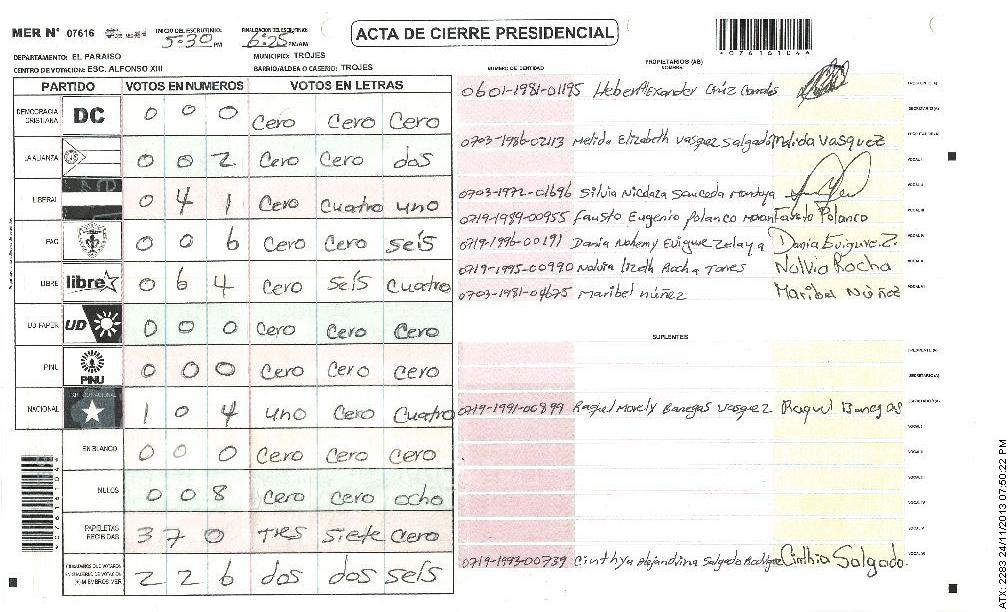 MER N° 07616 INICIO DEL ESCRUTINIO: 5:30 PM FINALIZACION DEL ESCRUTINIO: 6:25 PM/AM
ACTA DE CIERRE PRESIDENCIAL
07616104
DEPARTAMENTO: EL PARAISO MUNICIPIO: TROJES
CENTRO DE VOTACION: ESC. ALFONSO XIII BARRIO/ALDEA O CASERIO: TROJES
PARTIDO VOTOS EN NUMEROS VOTOS EN LETRAS
DEMOCRACIA CRISTIANA DC 0 0 0 Cero Cero Cero
LA ALIANZA 0 0 2 Cero Cero dos
LIBERAL 0 4 1 Cero Cuatro uno
PAC 0 0 6 Cero Cero seis
LIBRE libre 0 6 4 Cero Seis Cuatro
UD-FAPER UD 0 0 0 Cero Cero Cero
PINU PINU 0 0 0 Cero Cero Cero
NACIONAL 1 0 4 uno Cero Cuatro
EN BLANCO 0 0 0 Cero Cero Cero
NULOS 0 0 8 Cero Cero ocho
PAPELETAS RECIBIDAS 3 7 0 Tres Siete Cero
CIUDADANOS QUE VOTARON 2 2 6 dos dos seis
NUMERO DE IDENTIDAD PROPIETARIOS (AS) NOMBRE
0601-1981-01195 Heber Alexander Cruz
0703-1986-02113 Melida Elizabeth Vasquez Salgado Melida Vasquez
0703-1972-01696 Silvia Nicolaza Sauceda Montoya
0719-1989-00955 Fausto Eugenio Polanco Fausto Polanco
0719-1996-00191 Dania Nohemy Evigure Zelaya Dania Evigure.Z.
0719-1995-00990 Nolvia lizeth Rocha Torres Nolvia Rocha
0703-1981-04675 Maribel núñez Maribel Núñez
SUPLENTES
0719-1991-00899 Raquel Banegas Vasquez Raquel Banegas
0719-1993-00739 Cinthya Alejandrina Salgado Rodriguez Cinthia Salgado.
ATX: 2283 24/11/2013 07:50:22 PM